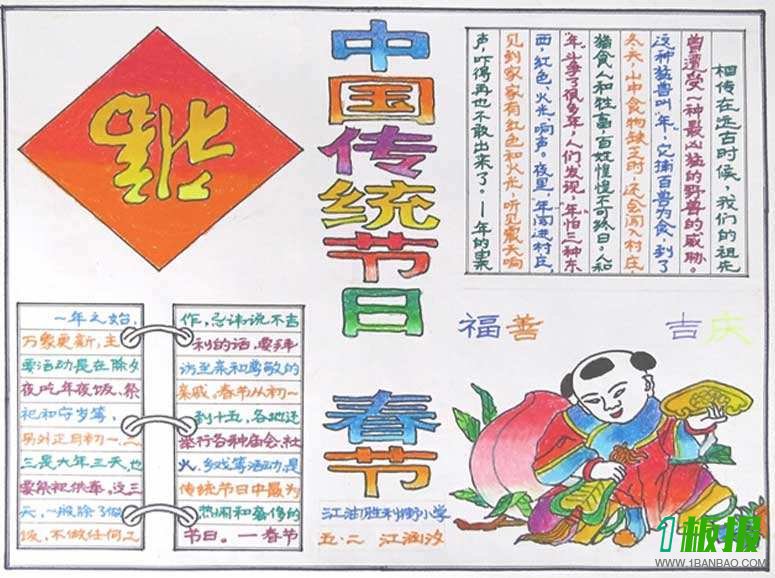 福
中国传统节日 春节
相传在远古时候，我们的祖先
曾遭受一种最凶猛的野兽的威胁。
这种猛兽叫"年"，它捕百兽为食，到了
冬天，山中食物缺乏时，还会闯入村庄，
猎食人和牲畜，百姓惶惶不可终日。人和
"年"斗争了很多年，人们发现，"年"怕三种东
西，红色、火光、响声。夜里，年闯进村庄，
见到家家有红色和火光，听见震天响
声，吓得再也不敢出来了。——年的
一年之始，
万象更新，主
要活动是在除夕
夜吃年夜饭、祭
祀和守岁等，
另外正月初一、二、
三是大年三天，也
要祭祀供奉。这三
天，一般除了做
饭，不做任何工
作，忌讳说不吉
利的话，要拜
访至亲和尊敬的
亲戚。春节从初一
到十五，各地还
举行各种庙会、社
火、乡戏等活动，是
传统节日中最为
热闹和奢侈的
节日。——春节
福善 吉庆
江油胜利街小学
五·二 江涵汐
1板报
WWW.1BANBAO.COM